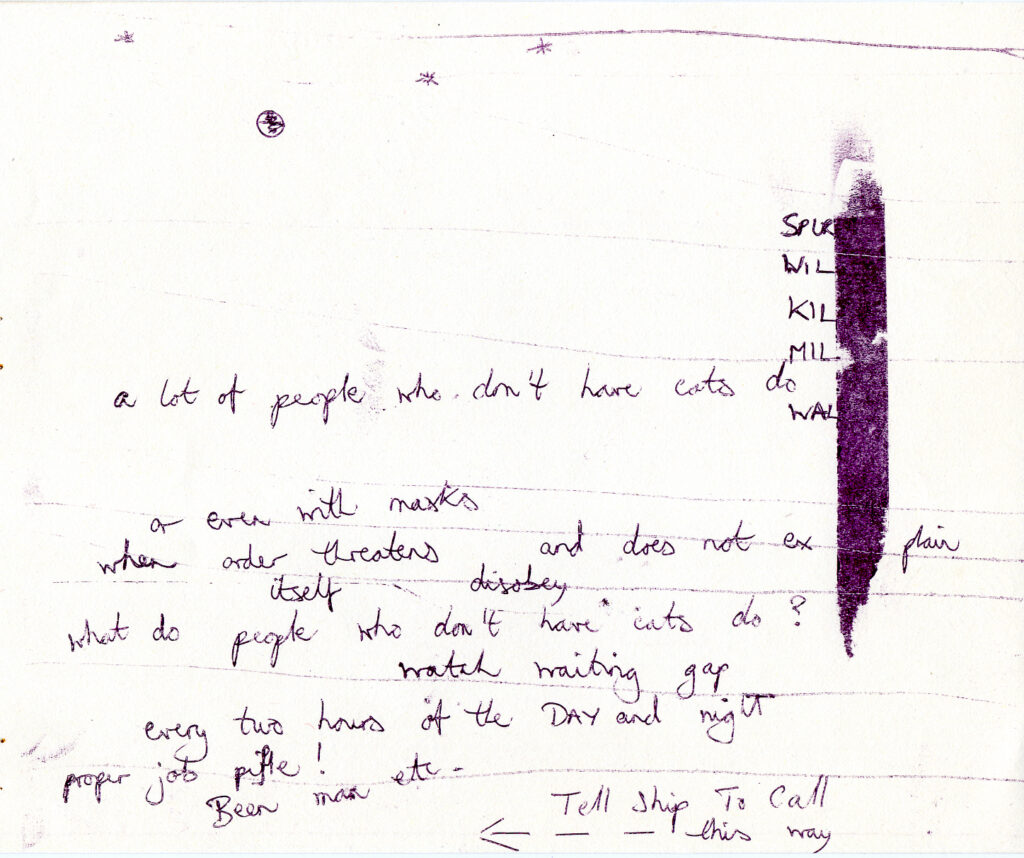 SPUR
WIL
KIL
MIL
a lot of people who don't have cats do
WAL
or even with masks
when order threatens and does not ex plain
itself disobey
what do people who don't have cats do ?
watch waiting gap
every two hours of the DAY and night
proper job piffle !
Been man etc -
Tell Ship To Call
this way